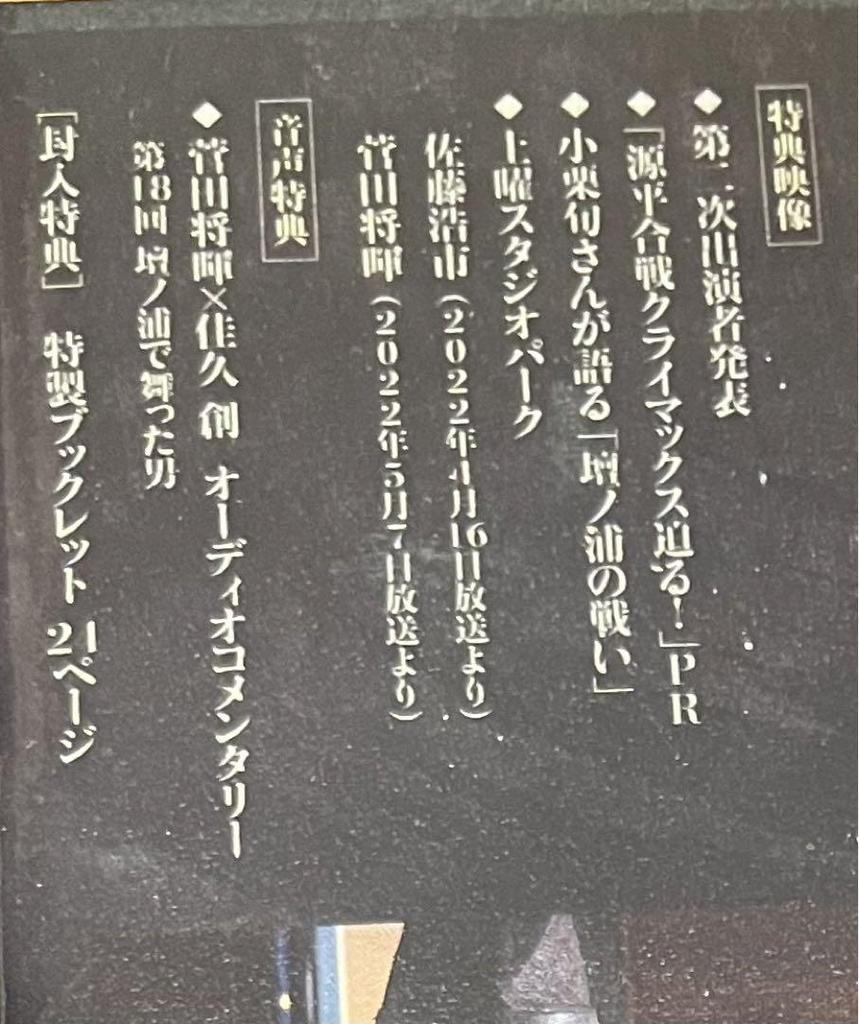 特典映像
◆第二次出演者発表
◆「源平合戦クライマックス迫る！」PR
◆小栗旬さんが語る「壇ノ浦の戦い」
◆土曜スタジオパーク
佐藤浩市（2022年4月16日放送より）
菅田将暉（2022年5月7日放送より）
音声特典
◆菅田将暉×佳久 創 オーディオコメンタリー
第18回 壇ノ浦で舞った男
［封入特典］ 特製ブックレット 24ページ